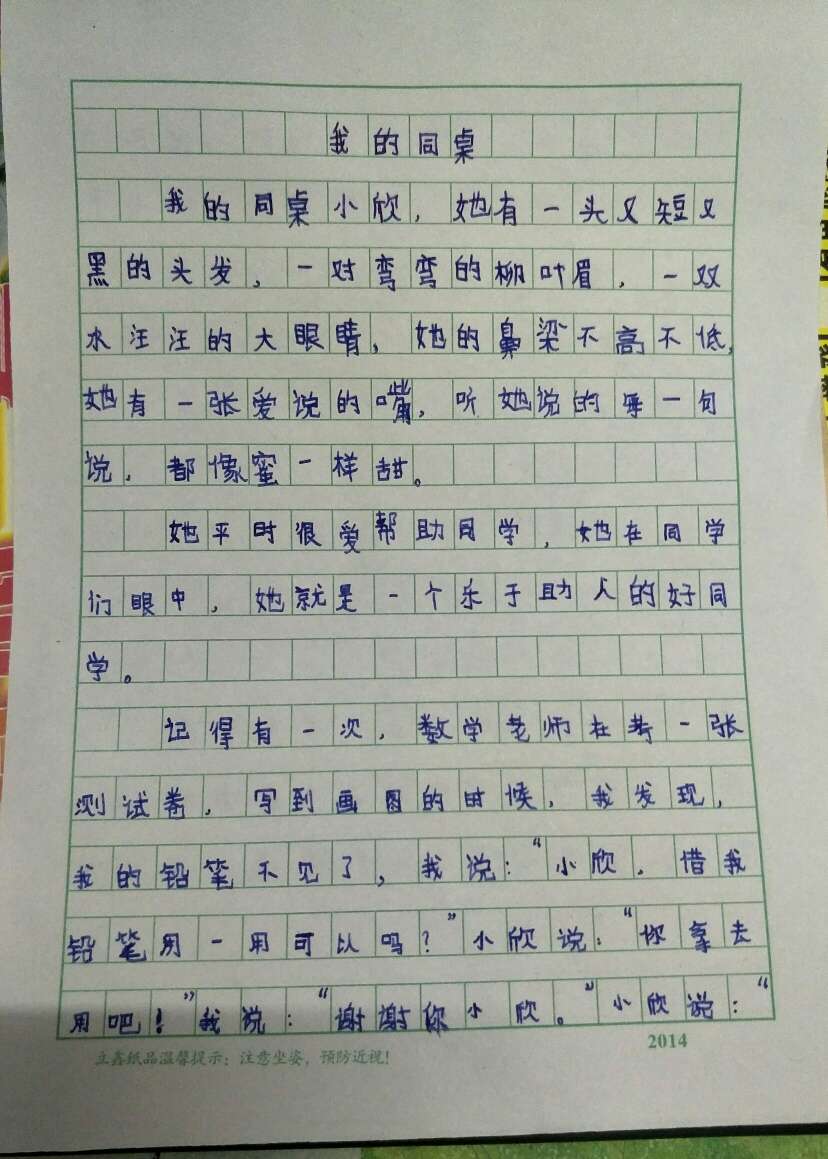 我的同桌
我的同桌小欣，她有一头又短又
黑的头发，一对弯弯的柳叶眉，一双
水汪汪的大眼睛，她的鼻梁不高不低，
她有一张爱说的嘴，听她说的每一句
说，都像蜜一样甜。
她平时很爱帮助同学，她在同学
们眼中，她就是一个乐于助人的好同
学。
记得有一次，数学老师在考一张
测试卷，写到画图的时候，我发现，
我的铅笔不见了，我说：“小欣，借我
铅笔用一用可以吗？”小欣说：“你拿去
用吧！”我说：“谢谢你小欣。”小欣说：“
立鑫纸品温馨提示：注意坐姿，预防近视！
2014